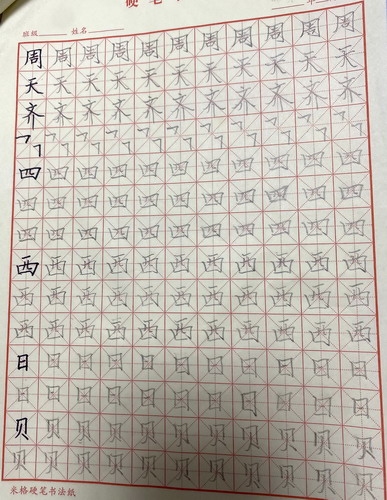 硬 笔
班级 姓名
周 周 周 周 周 周 周 周 周 周 周
天 天 天 天 天 天 天 天 天 天 天
齐 齐 齐 齐 齐 齐 齐 齐 齐 齐 齐
四 四 四 四 四 四 四 四 四 四 四
四 四 四 四 四 四 四 四 四 四 四
四 四 四 四 四 四 四 四 四 四 四
西 西 西 西 西 西 西 西 西 西 西
西 西 西 西 西 西 西 西 西 西 西
西 西 西 西 西 西 西 西 西 西 西
日 日 日 日 日 日 日 日 日 日 日
日 日 日 日 日 日 日 日 日 日 日
贝 贝 贝 贝 贝 贝 贝 贝 贝 贝 贝
贝 贝 贝 贝 贝 贝 贝 贝 贝 贝 贝
米格硬笔书法纸